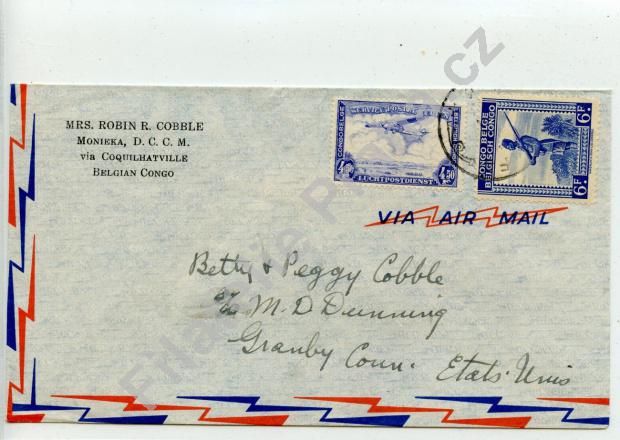 MRS. ROBIN R. COBBLE
MONIEKA, D. C. C. M.
via COQUILHATVILLE
BELGIAN CONGO
CONGO BELGE
LUCHTPOSTDIENST
4.50
CONGO BELGE
BELGISCH CONGO
6F.
6F.
VIA AIR MAIL
Betty & Peggy Cobble
c/o M. D. Dunning
Granby Conn. Etats-Unis